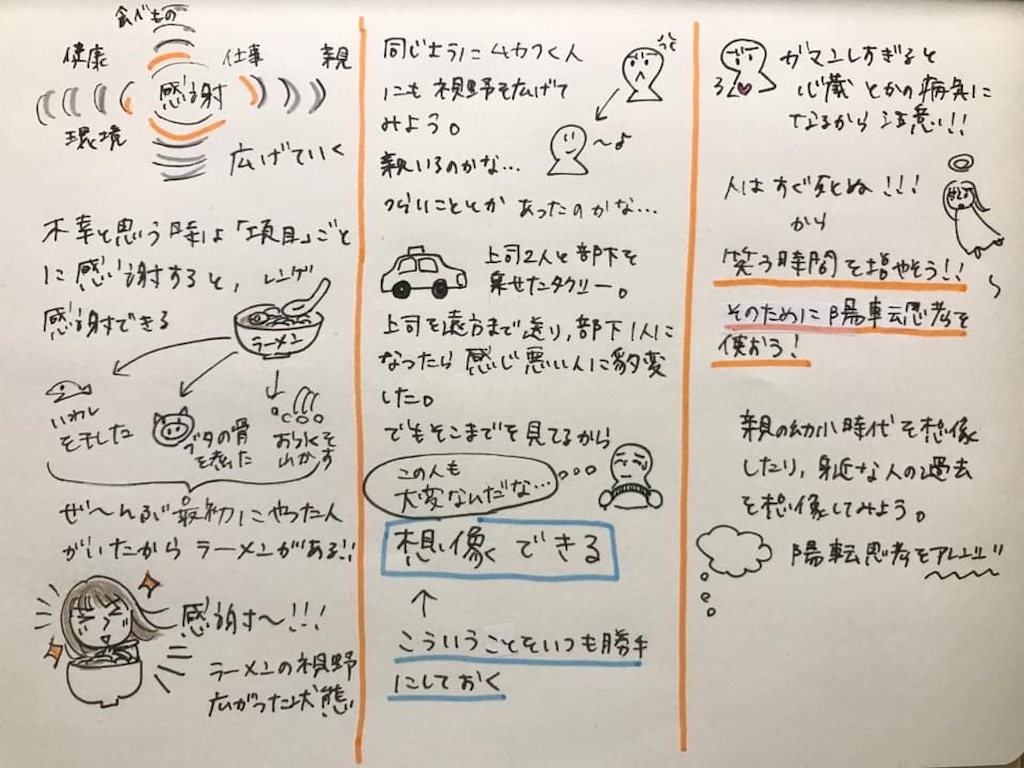 食べもの
健康
仕事
親
感謝
環境
広げていく
不幸と思う時は「項目」ごと
に感謝すると、
レンゲ
感謝できる
ラーメン
いわし
を干した
ブタの骨
を煮た
お水を
わかす
ぜ〜んぶ最初にやった人
がいたからラーメンがある!!
感謝〜!!!
ラーメンの視野
広がった状態
同じようにムカつく人
にも視野を広げて
みよう。
親いるのかな…
つらいこととかあったのかな…
〜♪
上司2人と部下を
乗せたタクシー。
上司を遠方まで送り,部下1人に
なったら感じ悪い人に豹変
した。
でもそこまでを見てるから
この人も
大変なんだな…
想像できる
↑
こういうことをいつも勝手
にしておく
ガマンしすぎると
心臓とかの病気に
なるから注意!!
人はすぐ死ぬ!!!
から
笑う時間を増やそう!!
そのために陽転思考を
使おう!
親の幼少時代を想像
したり,身近な人の過去
を想像してみよう。
陽転思考をアレンジ